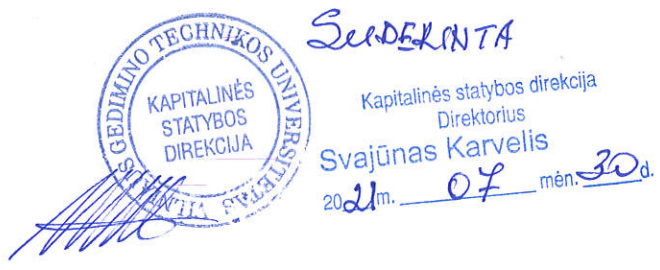 SUDERINTA
VILNIAUS GEDIMINO TECHNIKOS UNIVERSITETAS
KAPITALINĖS
STATYBOS
DIREKCIJA
Kapitalinės statybos direkcija
Direktorius
Svajūnas Karvelis
2021 m. 07 mėn. 30 d.